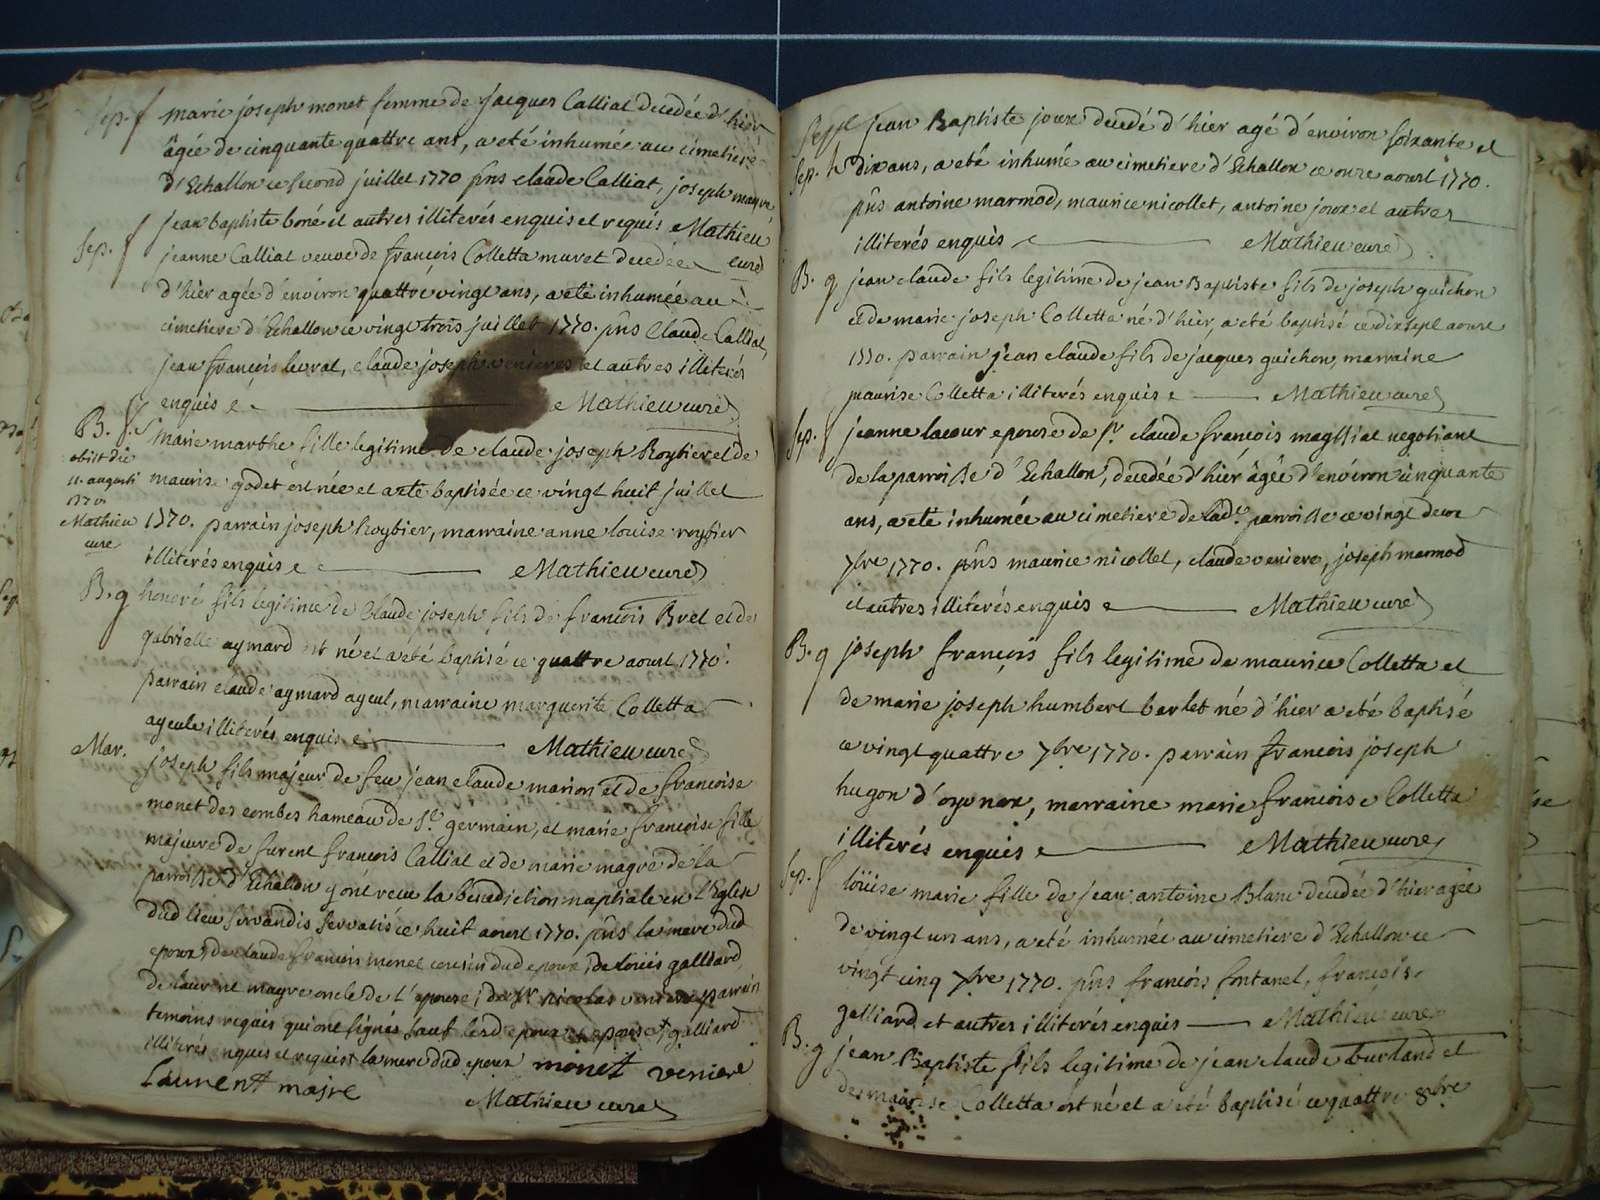 Sep. f marie joseph monet femme de jacques Calliat decedée d'hier
âgée de cinquante quattre ans, a eté inhumée au cimetiere
d'Echallon ce second juillet 1770 pñs claude Calliat, joseph magré
jean baptiste boné et autres illiterés enquis et requis Mathieu
curé
Sep. f jeanne Calliat veuve de françois Colletta muret decedée
d'hier agée d'environ quattre vingt ans, a eté inhumée au
cimetiere d'Echallon ce vingt trois juillet 1770. pñs Claude Calliat,
jean françois levrat, claude joseph venieres et autres illiterés
enquis e Mathieu curé
B. f. marie marthe fille legitime de claude joseph Roybier et de
maurise godet est née et a eté baptisée ce vingt huit juillet
1770. parrain joseph Roybier, marraine anne louise roybier
illiterés enquis e Mathieu curé
obiit die
11. augusti
1770
Mathieu
curé
B. g honoré fils legitime de Claude joseph fils de françois Brel et de
gabrielle aymard est né et a eté baptisé ce quattre aoust 1770.
parrain claude aymard ayeul, marraine marguerite Colletta
ayeule illiterés enquis e Mathieu curé
Mar. joseph fils majeur de feu jean claude marion et de francoise
monet des combes hameau de St. germain, et marie francoise fille
majeure de furent francois Calliat et de marie magré de la
parroisse d'Echallon y ont recu la benediction nuptiale en l'Eglise
dud lieu servandis servatis ce huit aoust 1770. pñs la mere dud
epoux, de claude francois monet cousin dud epoux, de loüis galliard,
de laurent mayre oncle de l'epouse, de Sr. nicolas veniere parrain
temoins requis qui ont signés sauf lesd epoux et epouse, galliard
illiterés enquis et requis et la mere dud epoux monet veniere
Laurent majre
Mathieu curé
Sep. h Jean Baptiste joux decedé d'hier agé d'environ soixante et
dix ans, a eté inhumé au cimetiere d'Echallon ce onze aoust 1770.
pñs antoine marmod, maurice nicollet, antoine joux et autres
illiterés enquis e Mathieu curé
B. g jean claude fils legitime de jean Baptiste fils de joseph guichon
et de marie joseph Colletta né d'hier, a eté baptisé ce dixsept aoust
1770. parrain jean claude fils de jacques guichon, marraine
maurise Colletta illiterés enquis e Mathieu curé
Sep. f jeanne lacour epouse de Sr. claude françois magllial negotiant
de la parroisse d'Echallon, decedée d'hier âgée d'environ cinquante
ans, a eté inhumée au cimetiere de lade. parroisse ce vingt deux
7bre 1770. pñs maurice nicollet, claude veniere, joseph marmod
et autres illiterés enquis e Mathieu curé
B. g joseph françois fils legitime de maurice Colletta et
de marie joseph humbert barlet né d'hier a eté baptisé
ce vingt quattre 7bre 1770. parrain francois joseph
hugon d'oyonax, marraine marie francoise Colletta
illiterés enquis e Mathieu curé
Sep. f loüise marie fille de jean antoine Blanc decedée d'hier agée
de vingt un ans, a eté inhumée au cimetiere d'Echallon ce
vingt cinq 7bre 1770. pñs francois fontanel, francois
galliard et autres illiterés enquis Mathieu curé
B. g jean Baptiste fils legitime de jean claude burland et
de maurise Colletta est né et a eté baptisé ce quattre 8bre